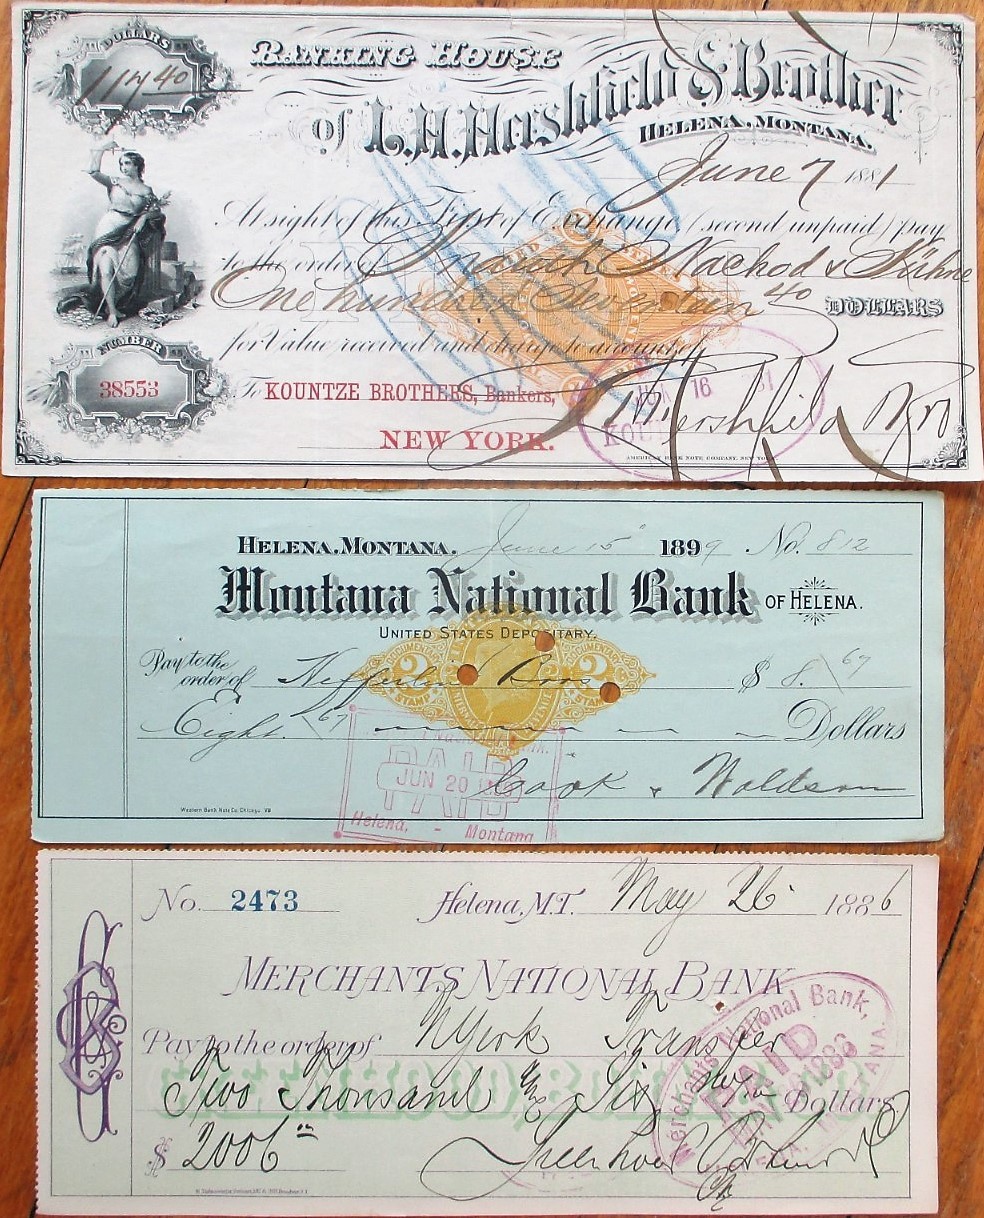 DOLLARS
117 40
BANKING HOUSE
of L.H. Hershfield & Brother
HELENA, MONTANA.
June 7 1881
At sight of this First of Exchange (second unpaid) pay
to the order of Knauth Nachod & Kühne
One hundred Seventeen 40 DOLLARS
for Value received and charge to account of
NUMBER
38553
To KOUNTZE BROTHERS, Bankers,
NEW YORK.
L.H. Hershfield & Bro
16
AMERICAN BANK NOTE COMPANY, NEW YORK
HELENA, MONTANA. June 15 1899 No. 812
Montana National Bank OF HELENA.
UNITED STATES DEPOSITARY.
Pay to the order of Kefferlin Bros $ 8.67
DOCUMENTARY
2 2
STAMP
Eight 67 Dollars
PAID
JUN 20
Helena, - Montana
Cook & Woldson
Western Bank Note Co. Chicago.
No. 2473 Helena, M.T. May 26 1886
MERCHANTS NATIONAL BANK
Pay to the order of NYork Transfer
Two Thousand & Six Dollars.
$ 2006
Merchants National Bank,
PAID
HELENA, MONTANA.